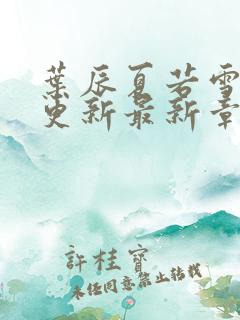 葉辰夏若雪
更新最新章
許桂寶
未經同意禁止轉載